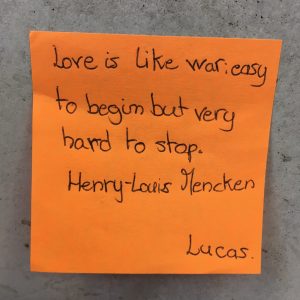 Love is like war: easy
to begim but very
hard to stop.
Henry-Louis Mencken
Lucas.